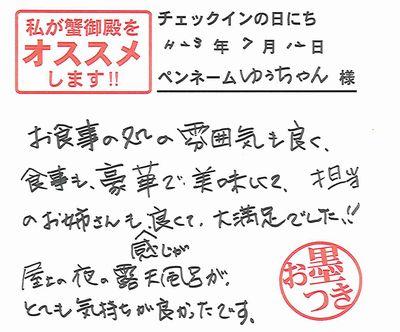 私が蟹御殿を
オススメ
します!!
チェックインの日にち
H23年7月12日
ペンネーム ゆうちゃん 様
お食事の処の雰囲気も良く、
食事も、豪華で美味しくて、担当
のお姉さんも感じが良くて、大満足でした!!
屋上の夜の露天風呂が、
とても気持ちが良かったです。
お墨
つき